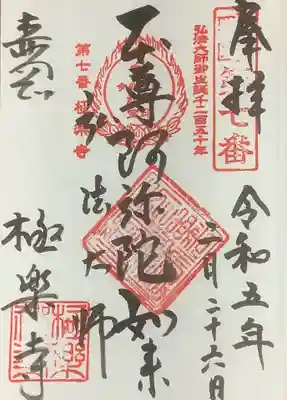 奉拝
七番
令和五年
月二十六日
弘法大師御生誕千二百五十年
本尊阿弥陀如来
弘法大師
第七番 極楽寺
極楽寺